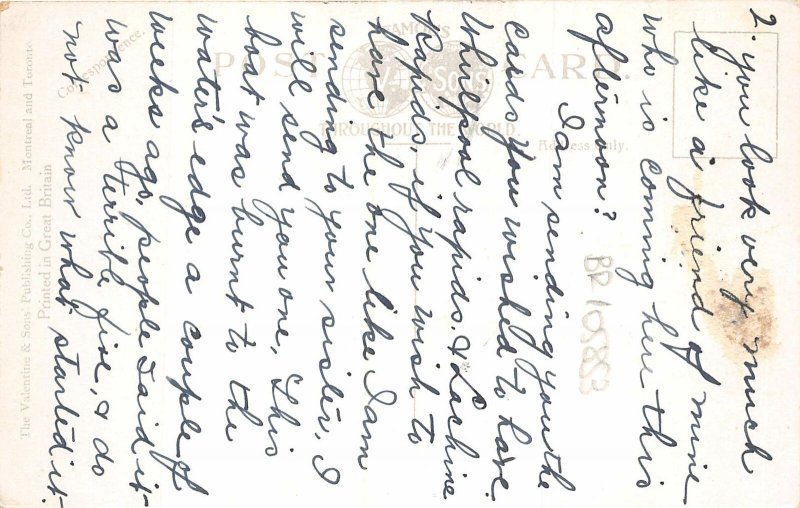 2. you look very much
like a friend of mine
who is coming here this
afternoon?
I am sending you the
cards you wished to have
Whirlpool rapids. & Lachine
Rapids, if you wish to
have the one like I am
sending to your sister, I
will send you one, This
boat was burnt to the
water's edge a couple of
weeks ago, people said it
was a terrible fire, & do
not know what started it.
POST CARD.
FAMOUS
THROUGHOUT THE WORLD.
Correspondence.
Address Only.
The Valentine & Sons' Publishing Co., Ltd. Montreal and Toronto
Printed in Great Britain